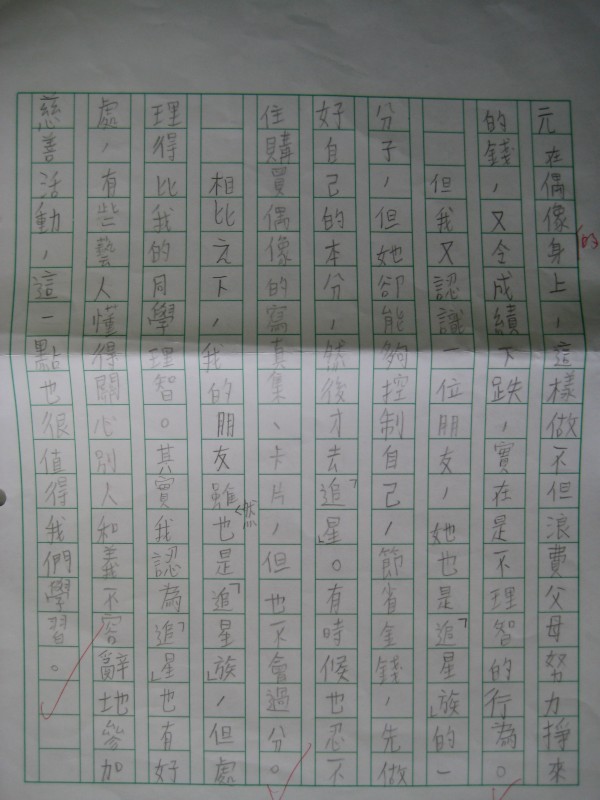 元在偶像身上，這樣做不但浪費父母努力掙來
的錢，又令成績下跌，實在是不理智的行為。
但我又認識一位朋友，她也是「追星」族的一
分子，但她卻能夠控制自己，節省金錢，先做
好自己的本分，然後才去「追星」。有時候也忍不
住購買偶像的寫真集、卡片，但也不會過分。
相比之下，我的朋友雖然也是「追星」族，但處
理得比我的同學理智。其實我認為「追星」也有好
處，有些藝人懂得關心別人和義不容辭地參加
慈善活動，這一點也很值得我們學習。
的